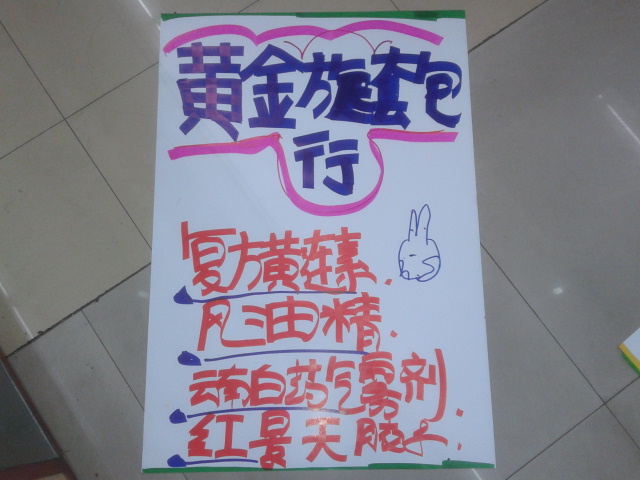 黄金旅套包
行
复方黄连素.
风油精.
云南白药气雾剂.
红景天胶囊.